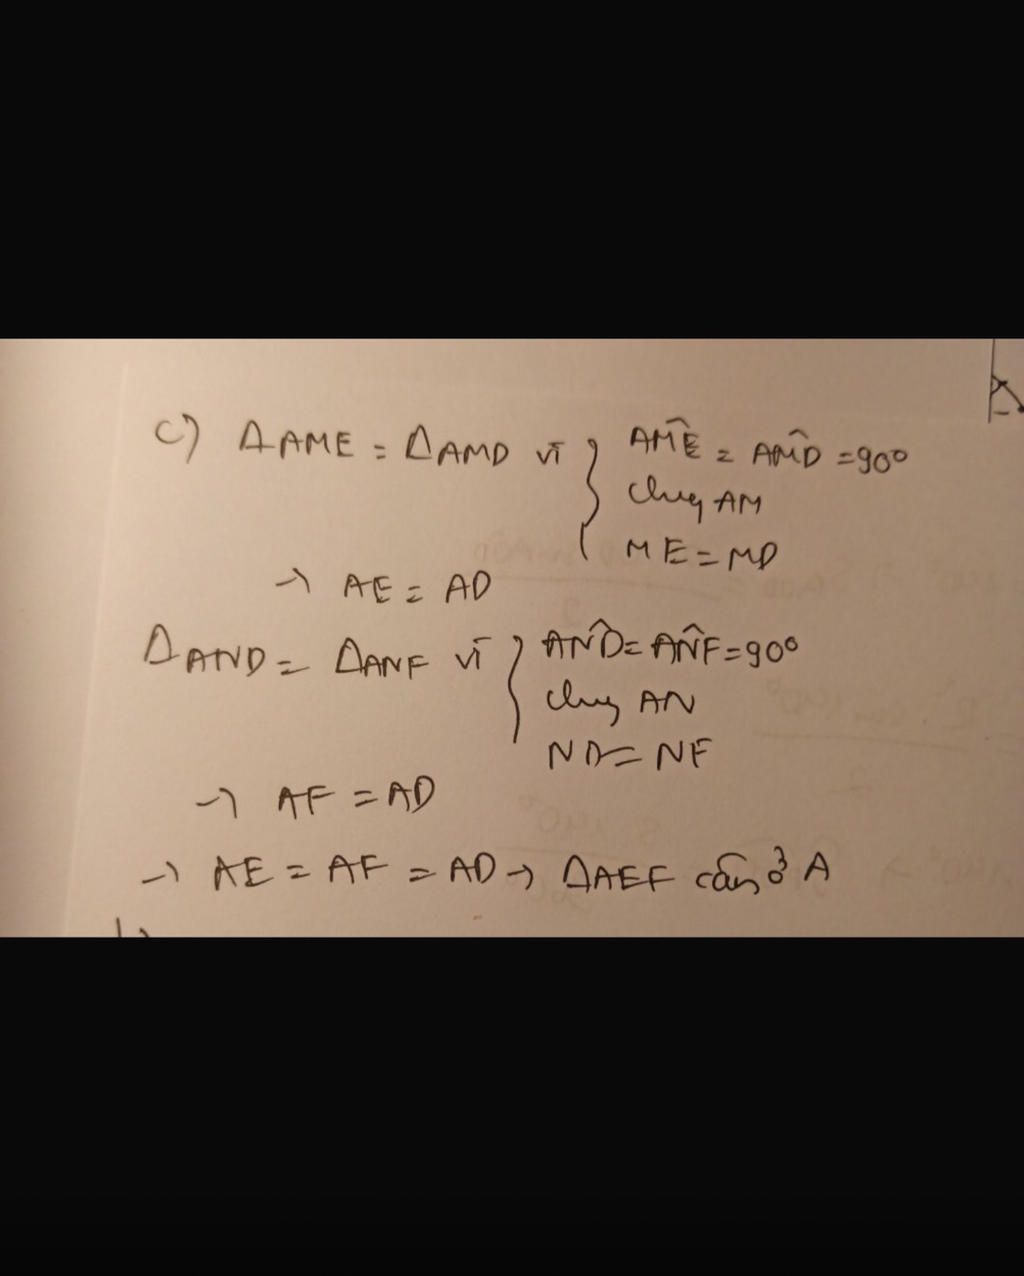 c) ΔAME = ΔAMD vì { AM̂E = AM̂D = 90°
chung AM
ME = MD
→ AE = AD
ΔAND = ΔANF vì { AN̂D = AN̂F = 90°
chung AN
ND = NF
→ AF = AD
→ AE = AF = AD → ΔAEF cân ở A